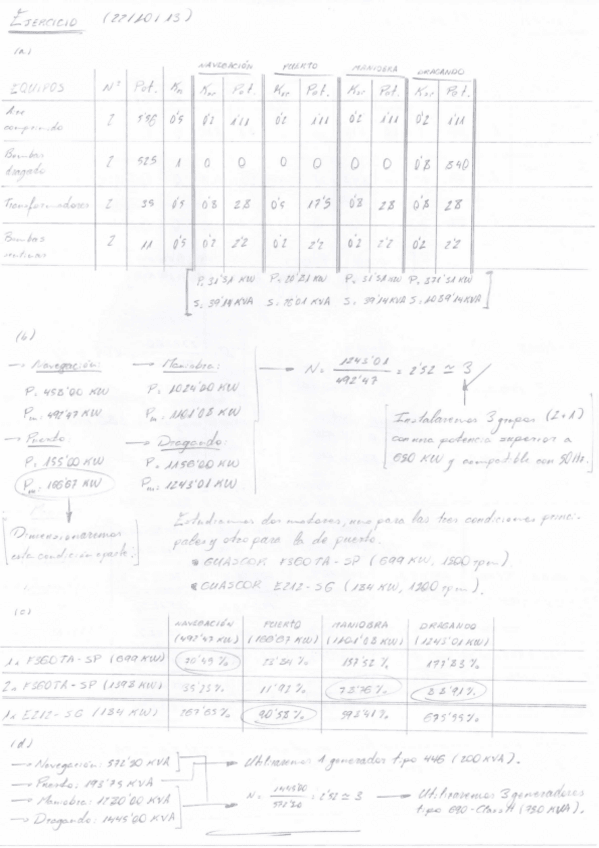 EJERCICIO (22/10/13)
(a)
NAVEGACIÓN PUERTO MANIOBRA DRAGANDO
EQUIPOS Nº Pot. Kn Ksr Pot. Ksr Pot. Ksr Pot. Ksr Pot.
Aire comprimido 2 5'56 0'5 0'2 1'11 0'2 1'11 0'2 1'11 0'2 1'11
Bombas dragado 2 525 1 0 0 0 0 0 0 0'8 840
Transformadores 2 35 0'5 0'8 28 0'5 17'5 0'8 28 0'8 28
Bombas 2 11 0'5 0'2 2'2 0'2 2'2 0'2 2'2 0'2 2'2
P: 31'31 KW P: 20'81 KW P: 31'31 KW P: 871'31 KW
S: 39'14 KVA S: 26'01 KVA S: 39'14 KVA S: 1089'14 KVA
(b)
→ Navegación: → Maniobra:
P: 458'00 KW P: 1024'00 KW
Pm: 492'47 KW Pm: 1101'08 KW
→ N = 1243'01 / 492'47 = 2'52 ≃ 3
→ Puerto: → Dragando:
P: 155'00 KW P: 1156'00 KW
Pm: 166'67 KW Pm: 1243'01 KW
Instalaremos 3 grupos (2+1)
con una potencia superior a
650 KW y compatible con 50Hz.
Dimensionaremos
esta condición aparte.
Estudiamos dos motores, uno para las tres condiciones princi-
pales y otro para la de puerto.
• GUASCOR F360TA-SP (699 KW, 1500 rpm).
• GUASCOR E212-SG (184 KW, 1500 rpm).
(c)
NAVEGACIÓN PUERTO MANIOBRA DRAGANDO
(492'47 KW) (166'67 KW) (1101'08 KW) (1243'01 KW)
1x F360TA-SP (699 KW) 70'45 % 23'84 % 157'52 % 177'83 %
2x F360TA-SP (1398 KW) 35'23 % 11'92 % 78'76 % 88'91 %
1x E212-SG (184 KW) 267'65 % 90'58 % 598'41 % 675'55 %
(d)
→ Navegación: 572'50 KVA
→ Puerto: 193'75 KVA
→ Maniobra: 1280'00 KVA
→ Dragando: 1445'00 KVA
→ Utilizaremos 1 generador tipo 446 (200 KVA).
N = 1445'00 / 572'50 = 2'52 ≃ 3 → Utilizaremos 3 generadores
tipo 690-Class H (750 KVA).